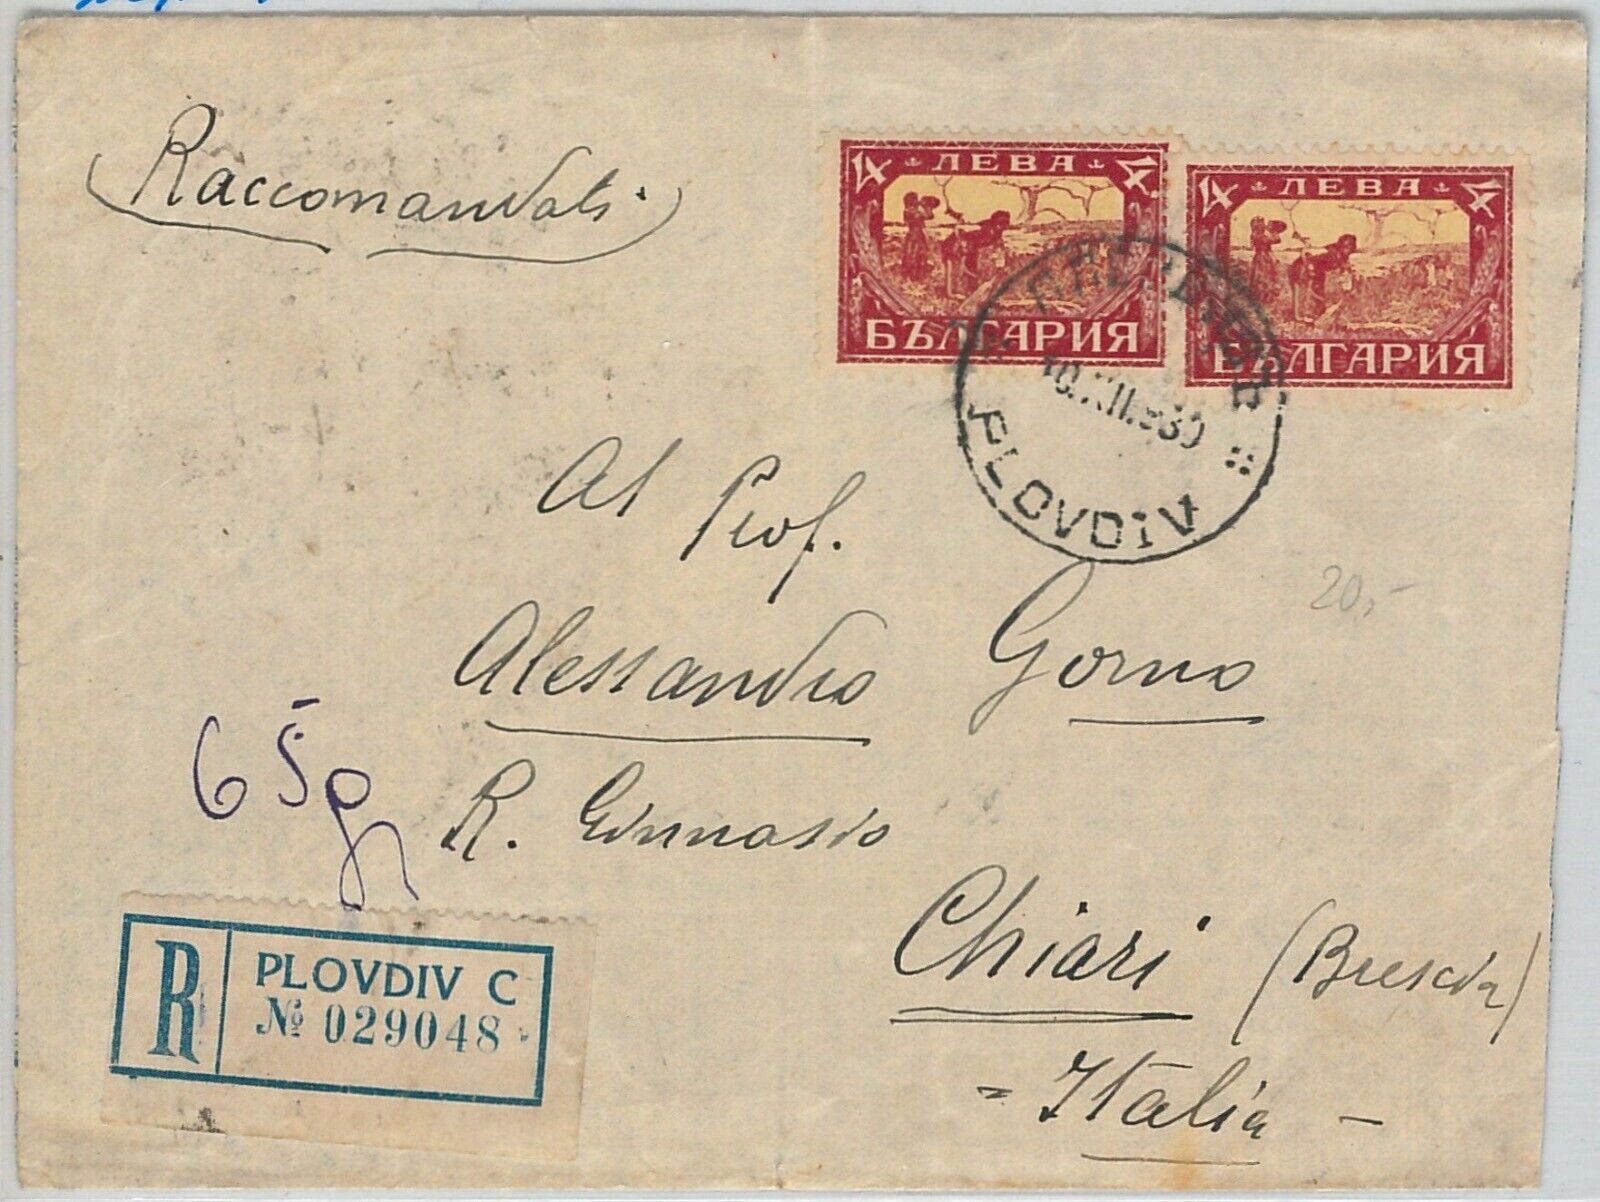 (Raccomandata)
4 ЛЕВА 4
БЪЛГАРИЯ
4 ЛЕВА 4
БЪЛГАРИЯ
10.XII.930
PLOVDIV
Al Prof.
Alessandro Gorno
20,-
65g
R. Ginnasio
Chiari (Brescia)
= Italia –
R
PLOVDIV C
№ 029048